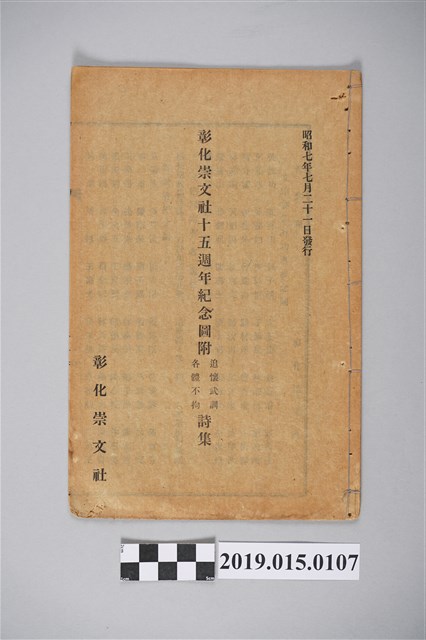 昭和七年七月二十一日發行
彰化崇文社十五週年紀念圖附
追懷武訓
各體不拘
詩集
彰化崇文社
2019.015.0107